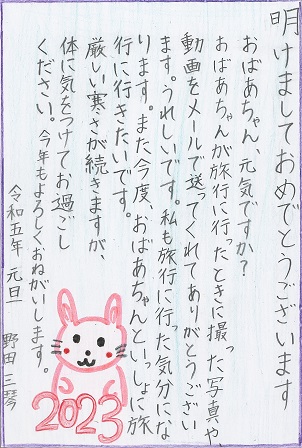 明けましておめでとうございます
おばあちゃん、元気ですか？
おばあちゃんが旅行に行ったときに撮った写真や、
動画をメールで送ってくれてありがとうござい
ます。うれしいです。私も旅行に行った気分にな
ります。また今度、おばあちゃんといっしょに旅
行に行きたいです。
厳しい寒さが続きますが、
体に気をつけてお過ごし
ください。今年もよろしくおねがいします。
令和五年 元旦 野田 三琴
2023